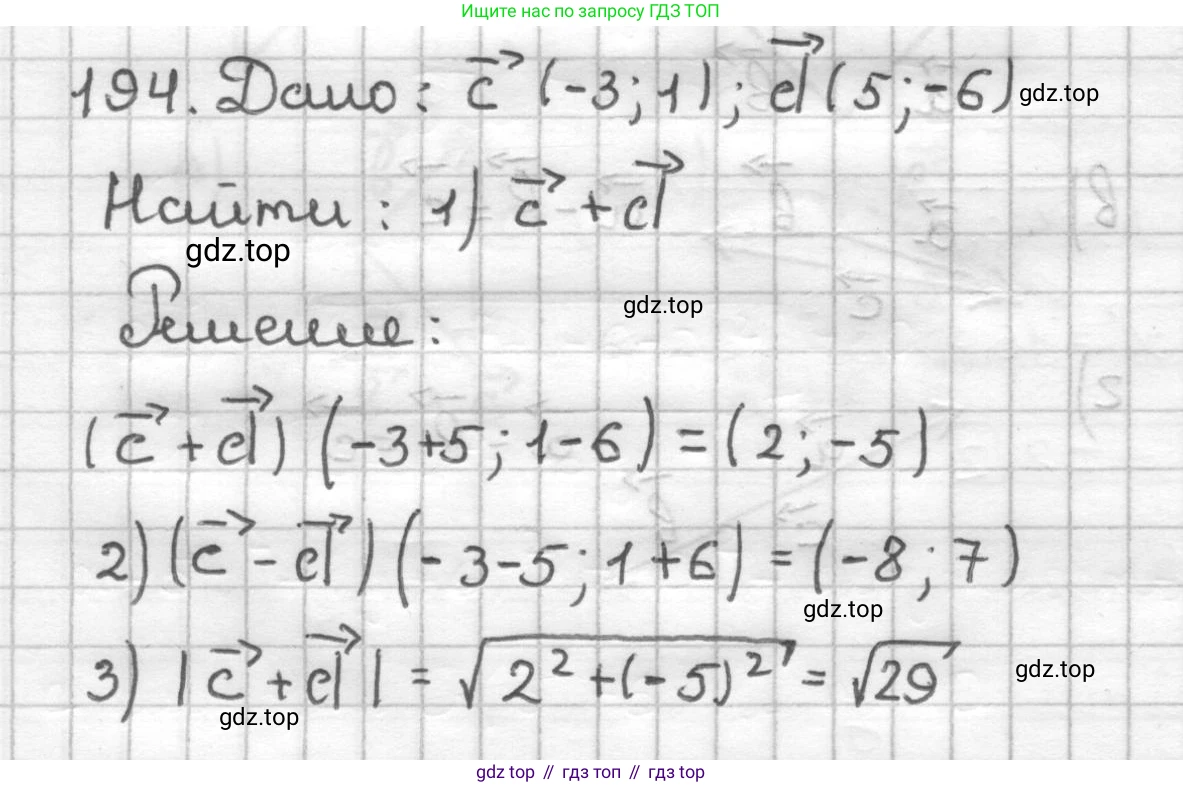 Ищите нас по запросу ГДЗ ТОП
194. Дано: c⃗ (-3; 1); d⃗ (5; -6) gdz.top
Найти: 1) c⃗ + d⃗
gdz.top
gdz.top
Решение:
(c⃗ + d⃗) (-3+5; 1-6) = (2; -5)
2) (c⃗ - d⃗) (-3-5; 1+6) = (-8; 7)
gdz.top
3) |c⃗ + d⃗| = √(2² + (-5)²) = √29 gdz.top
gdz.top
gdz top // гдз топ // гдз top